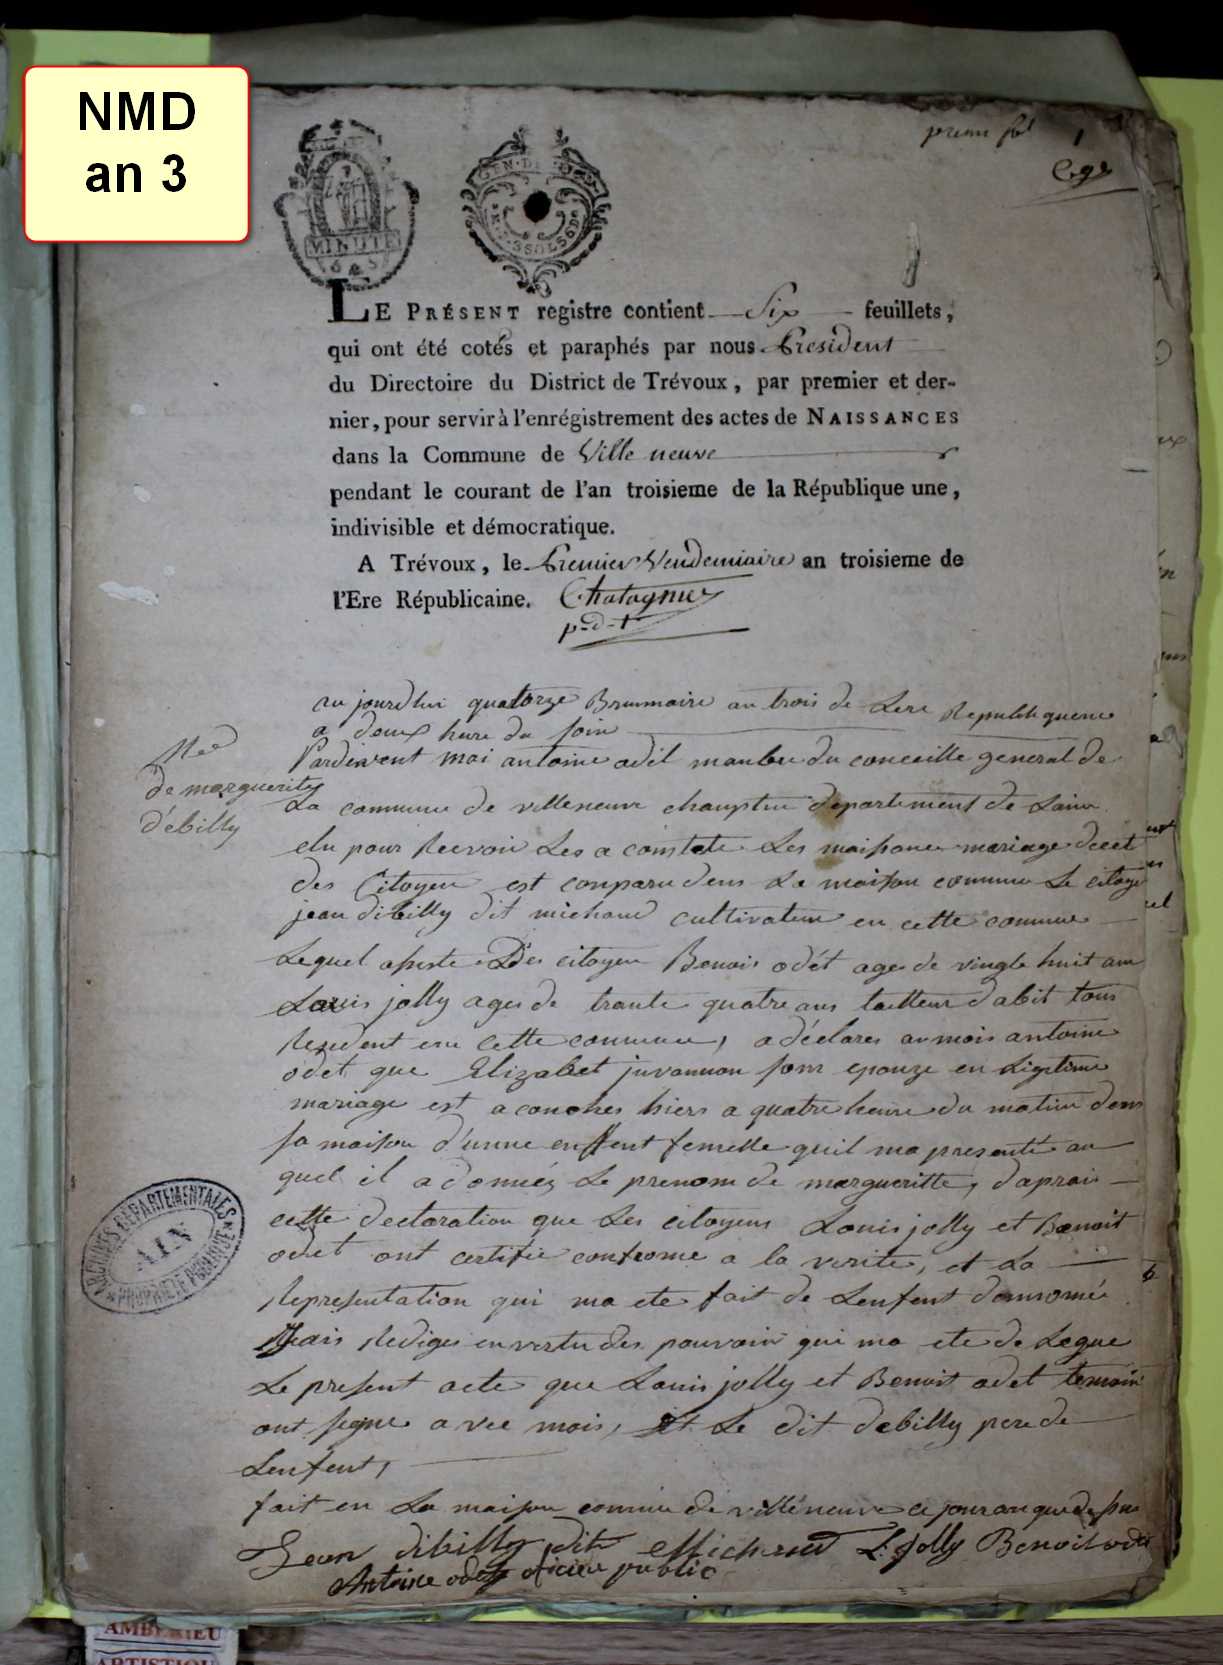 NMD
an 3
MINUTE
premier fol
1
LE PRÉSENT registre contient Six feuillets,
qui ont été cotés et paraphés par nous President
du Directoire du District de Trévoux, par premier et der-
nier, pour servir à l'enrégistrement des actes de NAISSANCES
dans la Commune de Ville neuve
pendant le courant de l'an troisieme de la République une,
indivisible et démocratique.
A Trévoux, le Premier Vendemiaire an troisieme de
l'Ere Républicaine. Chatagnier
p-d-t
de margueritte
d'ébilly
au jourdhui quatorze Brumaire an trois de Lere Republiquene
a deux hure du soir
Pardevent moi antoine odét manbre du conceille general de
La commune de villeneuve departement de Lain
elu pour Recevoir Les a constate Les maissance mariage decet
des Citoyen est conparu dens La maison commune Le citoye
jean dibilly dit michaud cultivateur en cette commune
Lequel asiste Des citoyen Benois odét ages de vingte huit ans
Louis jolly ages de trante quatre ans tailleur d'abit tous
Resident en cette commune, a déclares a mois antoine
odét que Elizabet juvannon son epouze en Ligitime
mariage est a couches hiers a quatre heure du matin dens
sa maison d'unne enffent femelle quil ma presenté au
quel il a donnéz Le prenom de margueritte, daprais
cette declaration que Les citoyens Louis jolly et Benoit
odét ont certifié confrome a la verite, et La
Representation qui ma ete fait de Lenfent denromé
Jais Rediges en vertu des pouvoir qui ma ete de Legue
Le present acte que Louis jolly et Benoit odet temoin
ont signe a vec mois, et Le dit debilly pere de
Lenfent,
fait en La maison comune de villeneuve ce jour an que desus
Jean dibilly dit Michaud L. Jolly Benoit odét
Antoine odet oficier public
ARCHIVES DEPARTEMENTALES
AIN
PROPRIETE PUBLIQUE
AMBERIEU